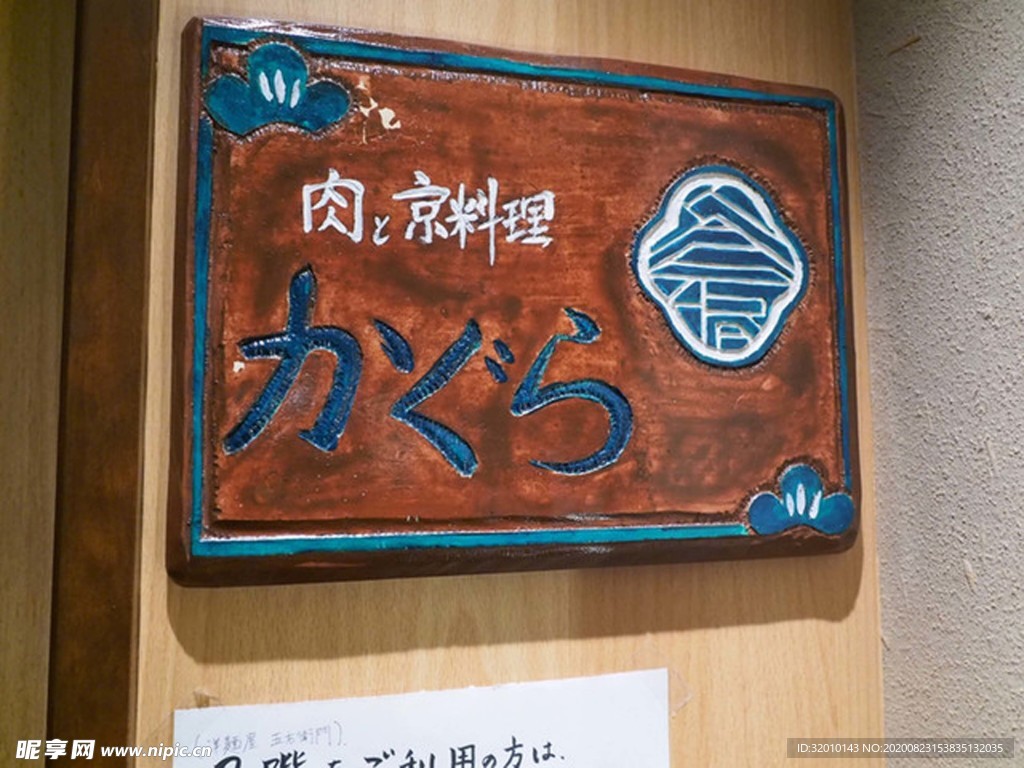 肉と京料理
かぐら
(洋麺屋 五右衛門)
階をご利用の方は、
昵享网 www.nipic.cn
ID:32010143 NO:20200823153835132035